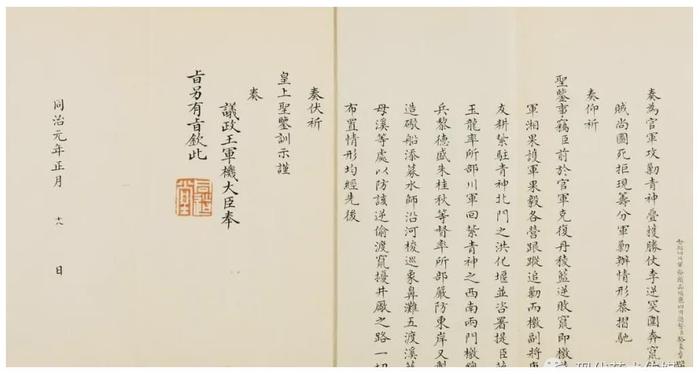 奏為官軍攻勦青神疊獲勝仗李逆突圍奔竄
賊尚圖死拒現籌分軍勦辦情形恭摺馳
奏仰祈
聖鑒事竊臣前於官軍克復丹稜藍逆敗竄即檄
軍湘果護軍果毅各營跟蹤追勦而檄副將唐
友耕紮駐青神北門之洪化堰並咨署提臣
玉龍率所部川軍回紮青神之西南兩門檄
兵黎德盛朱桂秋等督率所部嚴防東岸又製
造礮船添募水師沿河梭巡象鼻灘五渡溪
母溪等處以防該逆偷渡竄擾井廠之路一切
布置情形均經先後
奏伏祈
皇上聖鑒訓示謹
奏
議政王軍機大臣奉
旨另有旨欽此
同治元年正月 十八 日